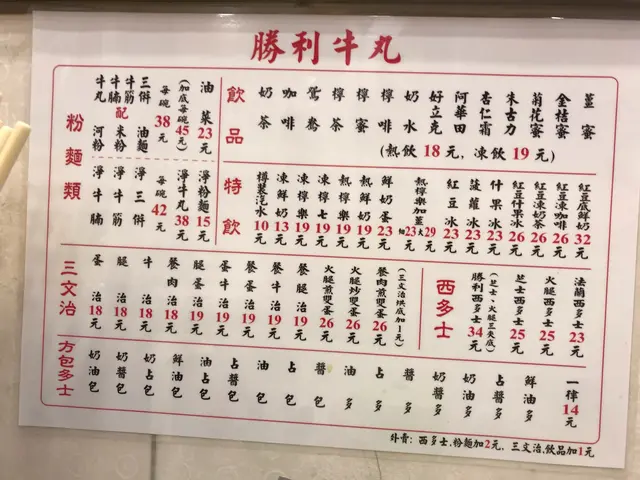 勝利牛丸
粉麵類
牛丸 河粉
牛腩 配 米粉
牛筋
三併 油麵
每碗38元
(加底每碗45元)
油菜23元
淨牛腩
淨牛筋
淨三併
每碗42元
淨牛丸38元
淨粉麵15元
飲品
奶茶
咖啡
鴛鴦
檸茶
檸蜜
檸啡
奶水
好立克
阿華田
杏仁霜
朱古力
菊花蜜
金桔蜜
薑蜜
(熱飲18元, 凍飲19元)
特飲
樽裝汽水10元
凍鮮奶13元
凍檸樂19元
凍檸七19元
熱檸樂19元
熱鮮奶19元
鮮奶蛋23元
熱檸樂加薑 細23大29元
紅豆冰23元
菠蘿冰23元
什果冰23元
紅豆什果冰26元
紅豆凍奶茶26元
紅豆凍咖啡26元
紅豆底鮮奶32元
三文治
蛋治18元
腿治18元
牛治18元
餐肉治18元
腿蛋治19元
蛋牛治19元
餐蛋治19元
餐牛治19元
餐腿治19元
火腿煎雙蛋26元
火腿炒雙蛋26元
餐肉煎雙蛋26元
(三文治烘底加1元)
西多士
(芝士、火腿三夾底)
勝利西多士34元
芝士西多士25元
火腿西多士25元
法蘭西多士23元
方包多士
奶油包
奶醬包
奶占包
鮮油包
油占包
占醬包
油包
占包
醬包
油多
占多
醬多
奶醬多
奶油多
占醬多
鮮油多
一律14元
外賣: 西多士,粉麵加2元, 三文治,飲品加1元